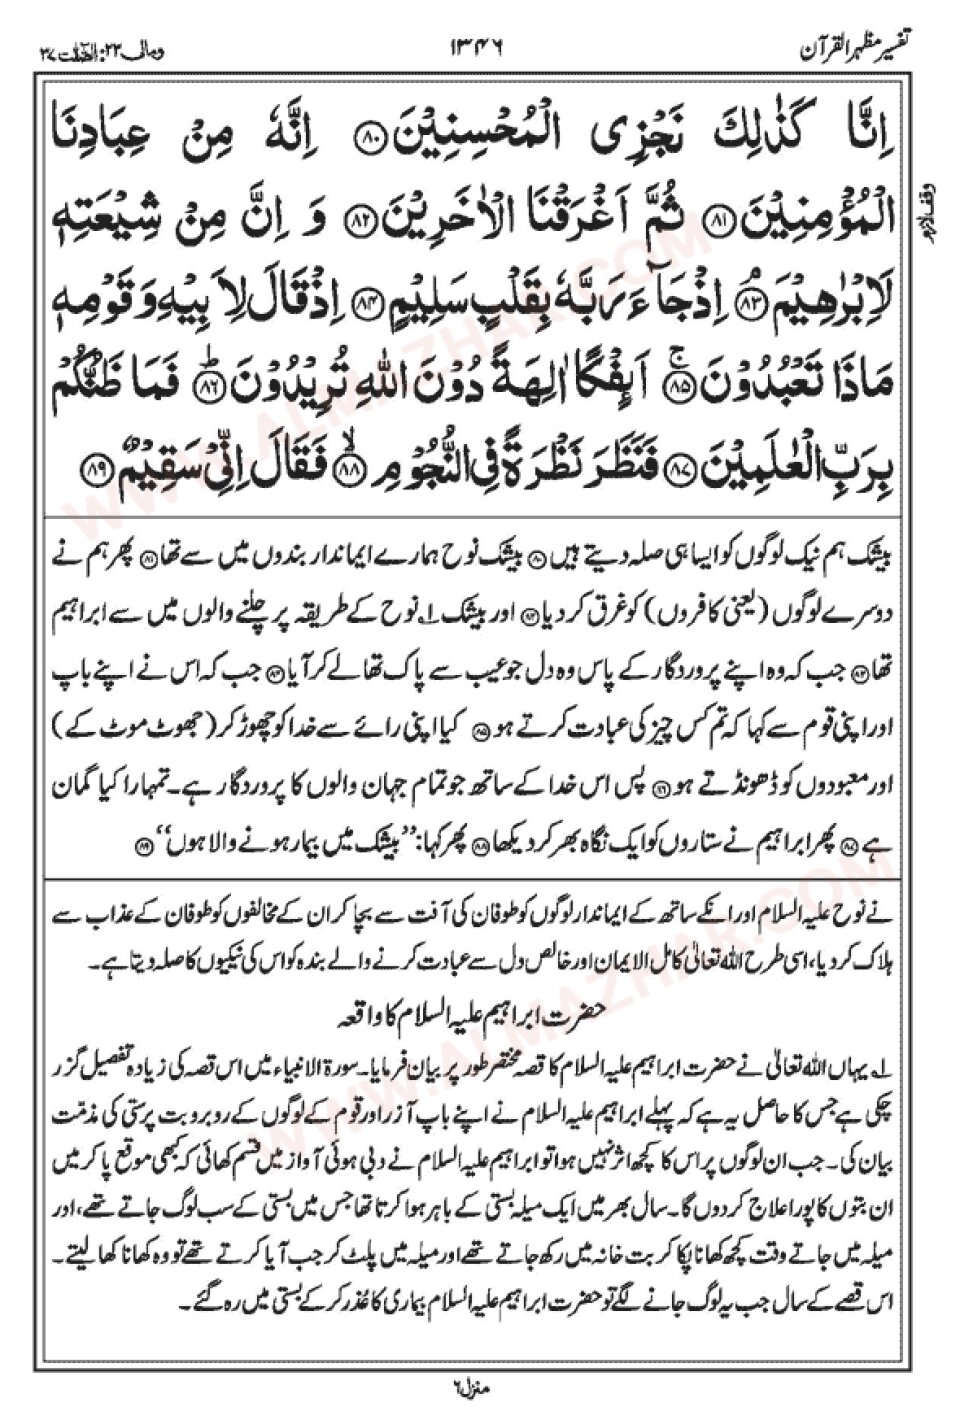 تفسیر مظہر القرآن
۱۳۴۶
ومالی ۲۳: الصّٰفّٰت ۳۷
اِنَّا كَذٰلِكَ نَجْزِی الْمُحْسِنِيْنَ ﴿۸۰﴾ اِنَّهٗ مِنْ عِبَادِنَا
الْمُؤْمِنِيْنَ ﴿۸۱﴾ ثُمَّ اَغْرَقْنَا الْاٰخَرِيْنَ ﴿۸۲﴾ وَ اِنَّ مِنْ شِيْعَتِهٖ
لَاِبْرٰهِيْمَ ﴿۸۳﴾ اِذْ جَآءَ رَبَّهٗ بِقَلْبٍ سَلِيْمٍ ﴿۸۴﴾ اِذْ قَالَ لِاَبِيْهِ وَقَوْمِهٖ
مَاذَا تَعْبُدُوْنَ ﴿۸۵﴾ اَئِفْكًا اٰلِهَةً دُوْنَ اللّٰهِ تُرِيْدُوْنَ ﴿۸۶﴾ فَمَا ظَنُّكُمْ
بِرَبِّ الْعٰلَمِيْنَ ﴿۸۷﴾ فَنَظَرَ نَظْرَةً فِی النُّجُوْمِ ﴿۸۸﴾ فَقَالَ اِنِّیْ سَقِيْمٌ ﴿۸۹﴾
وقف لازم
بیشک ہم نیک لوگوں کو ایسا ہی صلہ دیتے ہیں ﴿۸۰﴾ بیشک نوح ہمارے ایماندار بندوں میں سے تھا ﴿۸۱﴾ پھر ہم نے
دوسرے لوگوں (یعنی کافروں) کو غرق کر دیا ﴿۸۲﴾ اور بیشک ۱؎ نوح کے طریقہ پر چلنے والوں میں سے ابراہیم
تھا ﴿۸۳﴾ جب کہ وہ اپنے پروردگار کے پاس وہ دل جو عیب سے پاک تھا لے کر آیا ﴿۸۴﴾ جب کہ اس نے اپنے باپ
اور اپنی قوم سے کہا کہ تم کس چیز کی عبادت کرتے ہو ﴿۸۵﴾ کیا اپنی رائے سے خدا کو چھوڑ کر (جھوٹ موٹ کے)
اور معبودوں کو ڈھونڈتے ہو ﴿۸۶﴾ پس اس خدا کے ساتھ جو تمام جہان والوں کا پروردگار ہے۔ تمہارا کیا گمان
ہے ﴿۸۷﴾ پھر ابراہیم نے ستاروں کو ایک نگاہ بھر کر دیکھا ﴿۸۸﴾ پھر کہا: ’’بیشک میں بیمار ہونے والا ہوں‘‘ ﴿۸۹﴾
نے نوح علیہ السلام اور انکے ساتھ کے ایماندار لوگوں کو طوفان کی آفت سے بچا کر ان کے مخالفوں کو طوفان کے عذاب سے
ہلاک کر دیا، اسی طرح اللہ تعالیٰ کامل الایمان اور خالص دل سے عبادت کرنے والے بندہ کو اس کی نیکیوں کا صلہ دیتا ہے۔
حضرت ابراہیم علیہ السلام کا واقعہ
۱؎ یہاں اللہ تعالیٰ نے حضرت ابراہیم علیہ السلام کا قصہ مختصر طور پر بیان فرمایا۔ سورۃ الانبیاء میں اس قصہ کی زیادہ تفصیل گزر
چکی ہے جس کا حاصل یہ ہے کہ پہلے ابراہیم علیہ السلام نے اپنے باپ آزر اور قوم کے لوگوں کے روبرو بت پرستی کی مذمّت
بیان کی۔ جب ان لوگوں پر اس کا کچھ اثر نہیں ہوا تو ابراہیم علیہ السلام نے دبی ہوئی آواز میں قسم کھائی کہ کبھی موقع پا کر میں
ان بتوں کا پورا علاج کر دوں گا۔ سال بھر میں ایک میلہ بستی کے باہر ہوا کرتا تھا جس میں بستی کے سب لوگ جاتے تھے، اور
میلہ میں جاتے وقت کچھ کھانا پکا کر بت خانہ میں رکھ جاتے تھے اور میلہ میں پلٹ کر جب آیا کرتے تھے تو وہ کھانا کھا لیتے۔
اس قصے کے سال جب یہ لوگ جانے لگے تو حضرت ابراہیم علیہ السلام بیماری کا عُذر کر کے بستی میں رہ گئے۔
منزل ۶
WWW.ALMAZHAR.COM
WWW.ALMAZHAR.COM